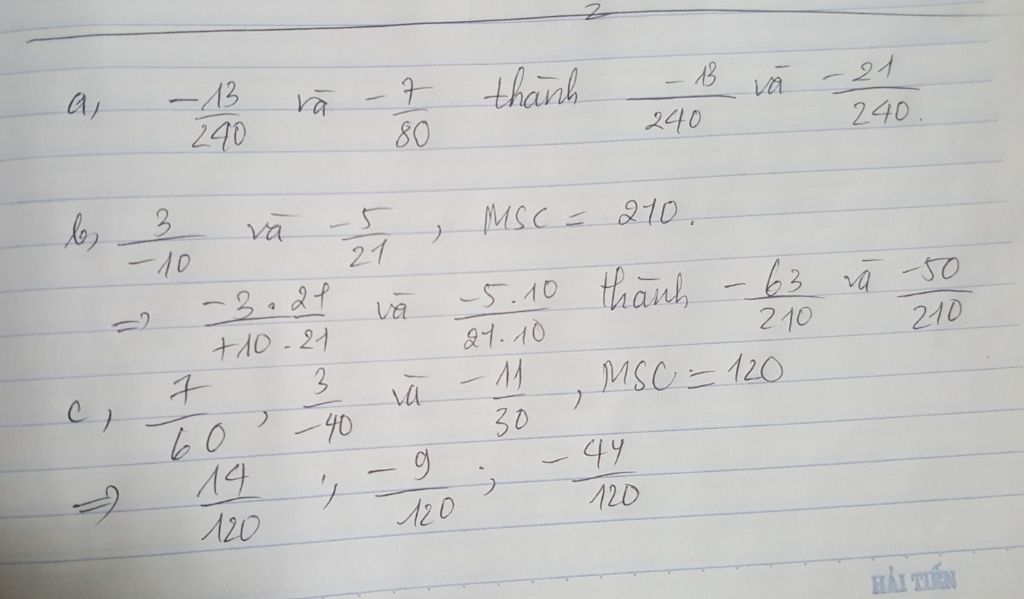 2
a, -13/240 và -7/80 thành -13/240 và -21/240.
b, 3/-10 và -5/21, MSC = 210.
=> -3.21/+10.21 và -5.10/21.10 thành -63/210 và -50/210
c, 7/60, 3/-40 và -11/30, MSC = 120
=> 14/120; -9/120; -44/120
HẢI TIẾN